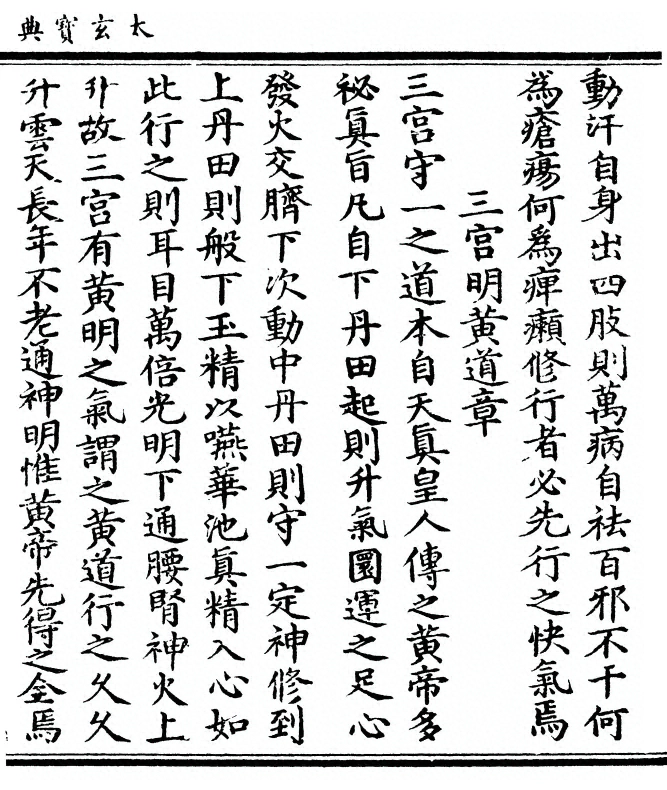 太玄寶典
動汗自身出四肢則萬病自祛百邪不干何
爲瘡瘍何爲痺癩修行者必先行之快氣焉
三宮明黃道章
三宮守一之道本自天眞皇人傳之黃帝多
祕眞旨凡自下丹田起則升氣圜運之足心
發火交臍下次動中丹田則守一定神修到
上丹田則般下玉精以嚥華池眞精入心如
此行之則耳目萬倍光明下通腰腎神火上
升故三宮有黃明之氣謂之黃道行之久久
升雲天長年不老通神明惟黃帝先得之全焉